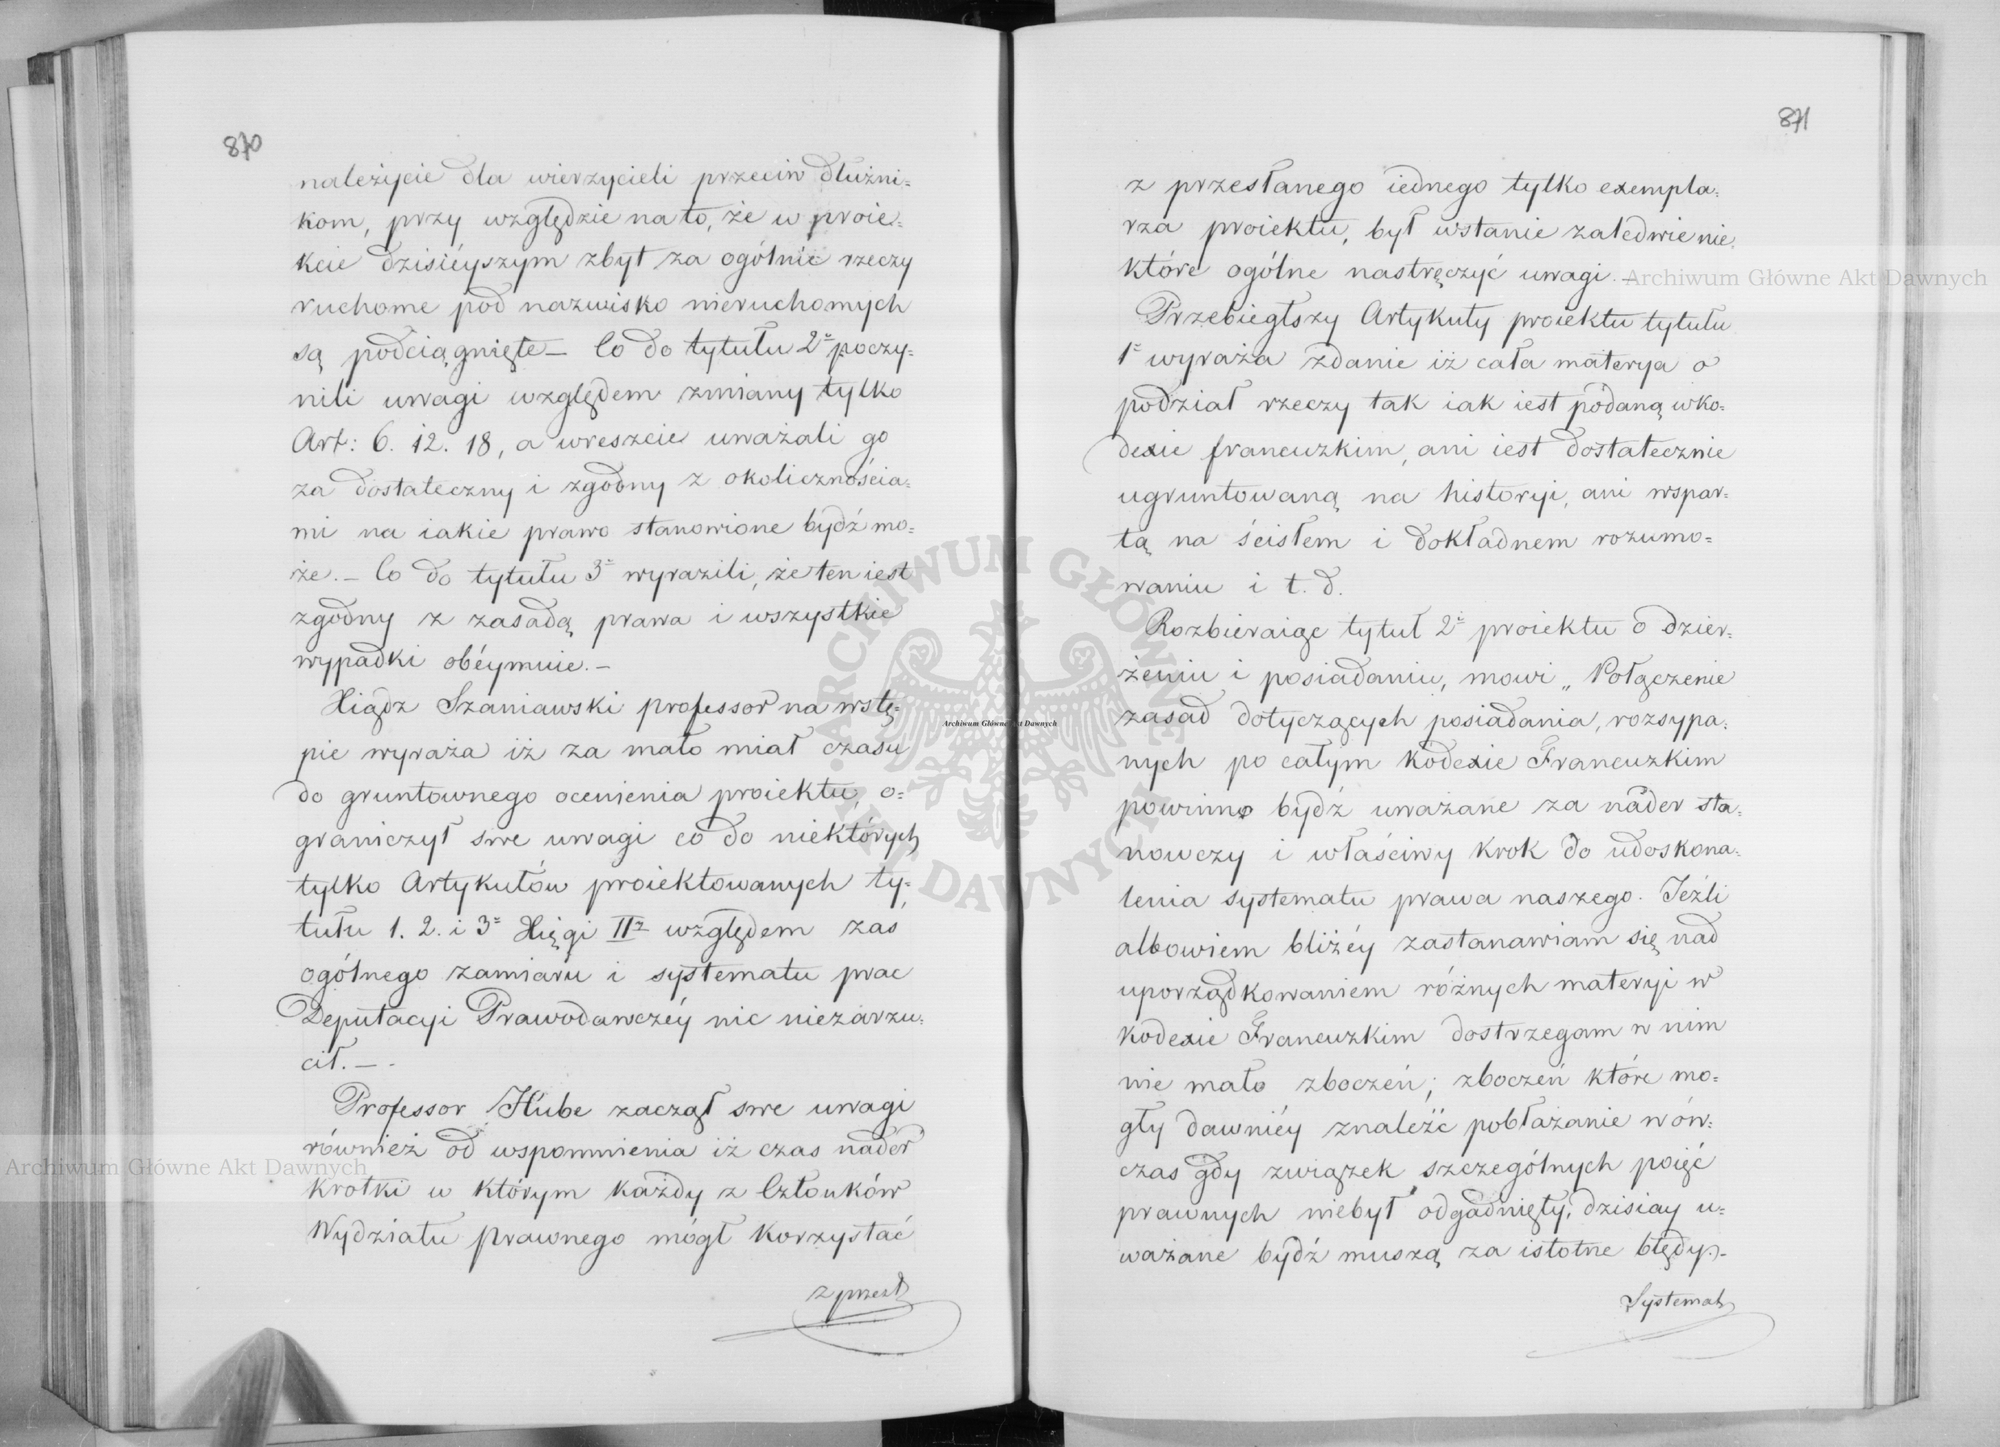 870
należycie dla wierzycieli przeciw dłużni=
kom, przy względzie na to, że w proie=
kcie dzisiéyszym zbyt za ogólnie rzeczy
ruchome pod nazwisko nieruchomych
są podciągnięte — Co do tytułu 2º poczy=
nili uwagi względem zmiany tylko
Art: 6. 12. 18, a wreszcie uważali go
za dostateczny i zgodny z okolicznościa=
mi na iakie prawo stanowione bydź mo=
że. — Co do tytułu 3º wyrazili, że ten iest
zgodny z zasadą prawa i wszystkie
wypadki obéymuie. —
Xiądz Szaniawski professor na wstę=
pie wyraża iż za mało miał czasu
do gruntownego ocenienia proiektu, o=
graniczył swe uwagi co do niektórych
tylko Artykułów proiektowanych ty=
tułu 1. 2. i 3º Xięgi IIº względem zaś
ogólnego zamiaru i systematu prac
Deputacyi Prawodawczéy nic niezarzu=
cił. —
Professor Hube zaczął swe uwagi
również od wspomnienia iż czas nader
krotki w którym każdy z Członków
Wydziału prawnego mógł korzystać
z przesł
871
z przesłanego iednego tylko exempla=
rza proiektu, był wstanie zaledwie nie=
które ogólne nastręczyć uwagi. —
Przebiegłszy Artykuły proiektu tytułu
1º wyraża zdanie iż cała materya o
podział rzeczy tak iak iest podaną w ko=
dexie francuzkim, ani iest dostatecznie
ugruntowaną na historyi, ani wspar=
tą na ścisłem i dokładnem rozumo=
waniu i t. d.
Rozbieraiąc tytuł 2º proiektu o dzier=
żeniu i posiadaniu, mowi „ Połączenie
zasad dotyczących posiadania, rozsypa=
nych po całym kodexie Francuzkim
powinno bydź uważane za nader sta=
nowczy i właściwy krok do udoskona=
lenia systematu prawa naszego. Jeźli
albowiem bliżéy zastanawiam się nad
uporządkowaniem różnych materyi w
kodexie Francuzkim dostrzegam w nim
nie mało zboczeń; zboczeń które mo=
gły dawniéy znaleźć pobłażanie wów=
czas gdy związek szczególnych poięć
prawnych niebył odgadnięty, dzisiay u=
ważane bydź muszą za istotne błędy. —
Systemat
Archiwum Główne Akt Dawnych
Archiwum Główne Akt Dawnych
Archiwum Główne Akt Dawnych
ARCHIWUM GŁÓWNE AKT DAWNYCH